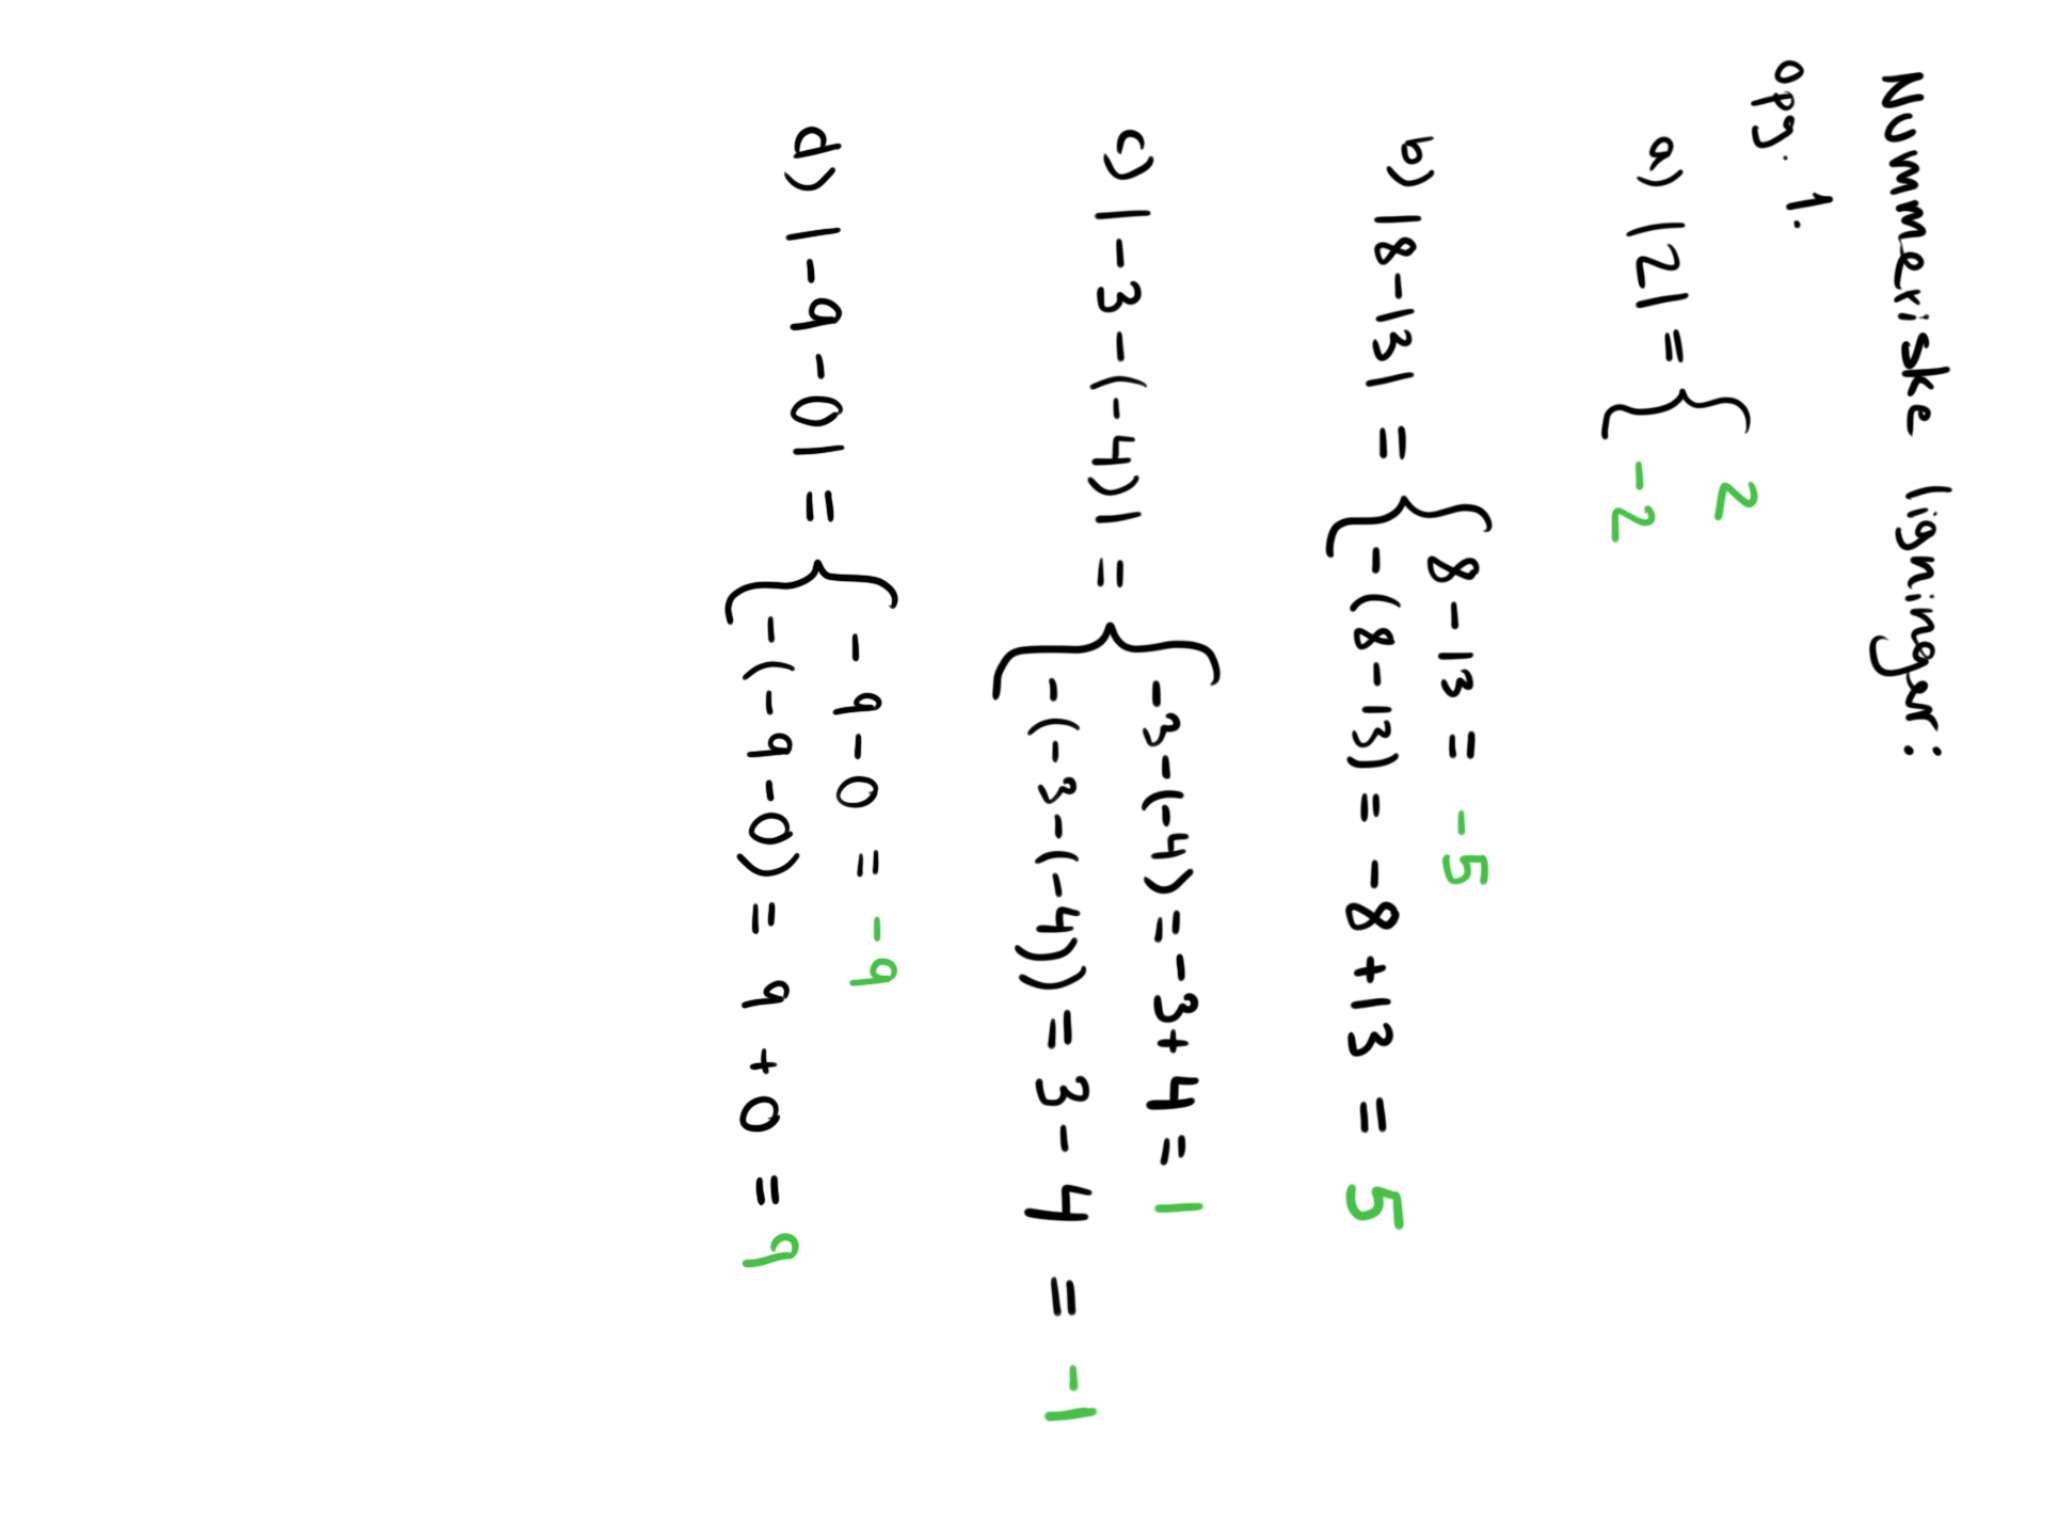 Nummeriske ligninger:
opg. 1.
a) |2| = { 2
-2
b) |8-13| = { 8-13 = -5
-(8-13) = -8+13 = 5
c) |-3-(-4)| = { -3-(-4) = -3+4 = 1
-(-3-(-4)) = 3-4 = -1
d) |-9-0| = { -9-0 = -9
-(-9-0) = 9+0 = 9